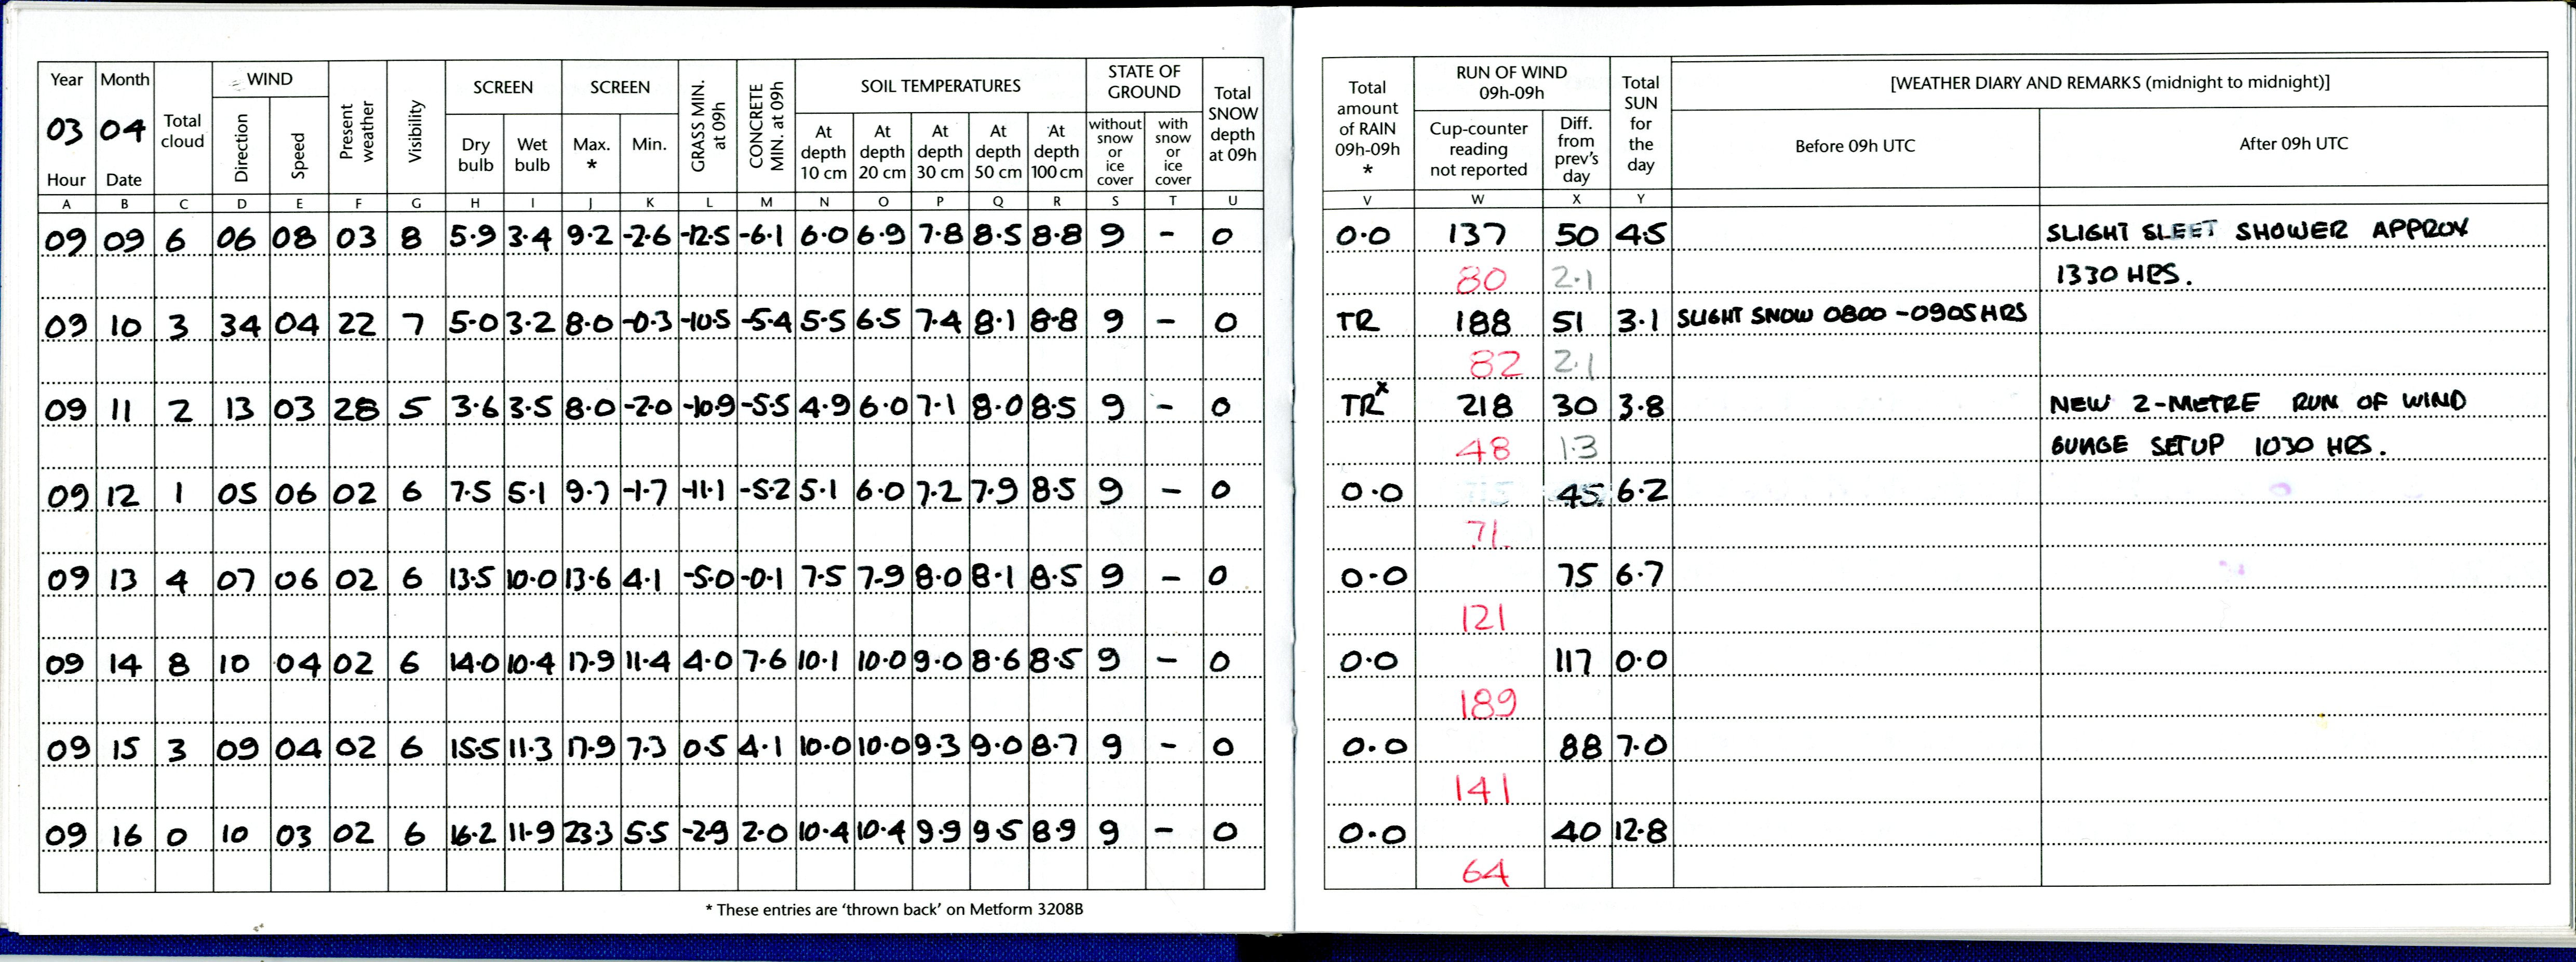 Year Month Total cloud WIND Present weather Visibility SCREEN SCREEN GRASS MIN. at 09h CONCRETE MIN. at 09h SOIL TEMPERATURES STATE OF GROUND Total SNOW depth at 09h
03 04 Direction Speed Dry bulb Wet bulb Max. * Min. At depth 10 cm At depth 20 cm At depth 30 cm At depth 50 cm At depth 100 cm without snow or ice cover with snow or ice cover
Hour Date
A B C D E F G H I J K L M N O P Q R S T U
09 09 6 06 08 03 8 5.9 3.4 9.2 -2.6 -12.5 -6.1 6.0 6.9 7.8 8.5 8.8 9 - 0
09 10 3 34 04 22 7 5.0 3.2 8.0 -0.3 -10.5 -5.4 5.5 6.5 7.4 8.1 8.8 9 - 0
09 11 2 13 03 28 5 3.6 3.5 8.0 -2.0 -10.9 -5.5 4.9 6.0 7.1 8.0 8.5 9 - 0
09 12 1 05 06 02 6 7.5 5.1 9.7 -1.7 -11.1 -5.2 5.1 6.0 7.2 7.9 8.5 9 - 0
09 13 4 07 06 02 6 13.5 10.0 13.6 4.1 -5.0 -0.1 7.5 7.9 8.0 8.1 8.5 9 - 0
09 14 8 10 04 02 6 14.0 10.4 17.9 11.4 4.0 7.6 10.1 10.0 9.0 8.6 8.5 9 - 0
09 15 3 09 04 02 6 15.5 11.3 17.9 7.3 0.5 4.1 10.0 10.0 9.3 9.0 8.7 9 - 0
09 16 0 10 03 02 6 16.2 11.9 23.3 5.5 -2.9 2.0 10.4 10.4 9.9 9.5 8.9 9 - 0
* These entries are 'thrown back' on Metform 3208B
Total amount of RAIN 09h-09h * RUN OF WIND 09h-09h Total SUN for the day [WEATHER DIARY AND REMARKS (midnight to midnight)]
Cup-counter reading not reported Diff. from prev's day Before 09h UTC After 09h UTC
V W X Y
0.0 137 50 4.5 SLIGHT SLEET SHOWER APPROX
80 2.1 1330 HRS.
TR 188 51 3.1 SLIGHT SNOW 0800-0905HRS
82 2.1
TRx 218 30 3.8 NEW 2-METRE RUN OF WIND
48 1.3 GUAGE SETUP 1030 HRS.
0.0 45 6.2
71
0.0 75 6.7
121
0.0 117 0.0
189
0.0 88 7.0
141
0.0 40 12.8
64